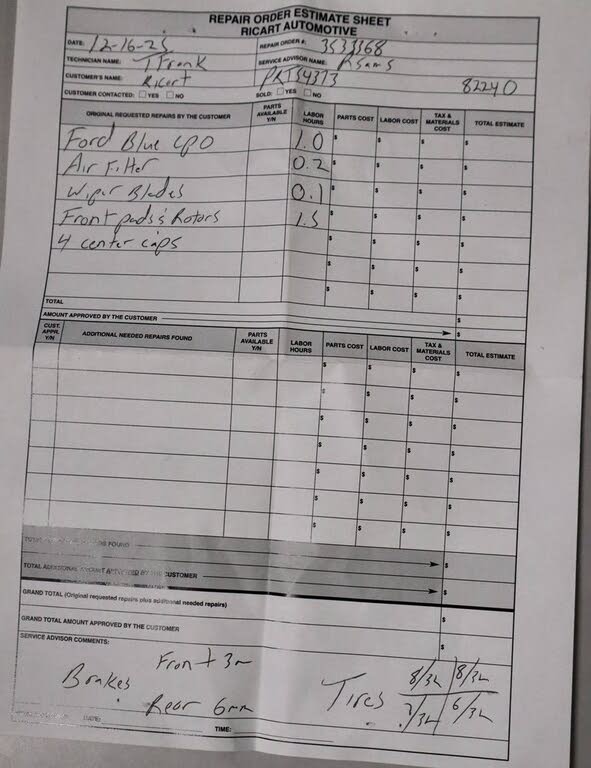 REPAIR ORDER ESTIMATE SHEET
RICART AUTOMOTIVE
DATE: 12-16-25 REPAIR ORDER #: 3533368
TECHNICIAN NAME: T Frank SERVICE ADVISOR NAME: RSams
CUSTOMER'S NAME: Ricart PRT84373 82240
CUSTOMER CONTACTED: YES NO SOLD: YES NO
ORIGINAL REQUESTED REPAIRS BY THE CUSTOMER PARTS AVAILABLE Y/N LABOR HOURS PARTS COST LABOR COST TAX & MATERIALS COST TOTAL ESTIMATE
Ford Blue CPO 1.0 $ $ $ $
Air Filter 0.2 $ $ $ $
Wiper Blades 0.1 $ $ $ $
Front pads & Rotors 1.5 $ $ $ $
4 center caps $ $ $ $
$ $ $ $
$ $ $ $
TOTAL $
AMOUNT APPROVED BY THE CUSTOMER $
CUST. APPR. Y/N ADDITIONAL NEEDED REPAIRS FOUND PARTS AVAILABLE Y/N LABOR HOURS PARTS COST LABOR COST TAX & MATERIALS COST TOTAL ESTIMATE
$ $ $ $
$ $ $ $
$ $ $ $
$ $ $ $
$ $ $ $
$ $ $ $
$ $ $ $
FOUND $
TOTAL ADDITIONAL AMOUNT APPROVED BY THE CUSTOMER $
GRAND TOTAL (Original requested repairs plus additional needed repairs) $
GRAND TOTAL AMOUNT APPROVED BY THE CUSTOMER $
SERVICE ADVISOR COMMENTS:
Brakes Front 3m Tires 8/32 8/32
Rear 6mm /32 6/32
DATE: TIME: